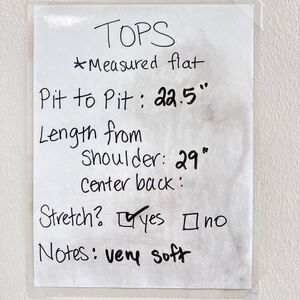 TOPS
*Measured flat
Pit to Pit: 22.5"
Length from
Shoulder: 29"
Center back:
Stretch? ☑ yes ☐ no
Notes: very soft